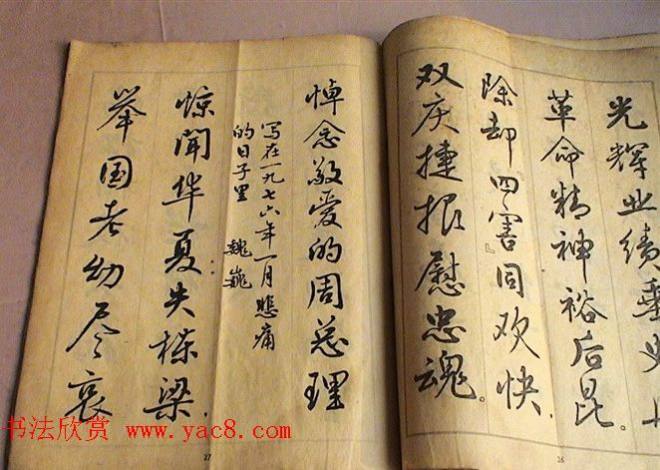 光辉业绩垂史
革命精神裕后昆。
除却『四害』同欢快，
双庆捷报慰忠魂。
26
悼念敬爱的周总理
写在一九七六年一月悲痛
的日子里 魏巍
惊闻华夏失栋梁，
举国老幼尽哀
27
书法欣赏 www.yac8.com